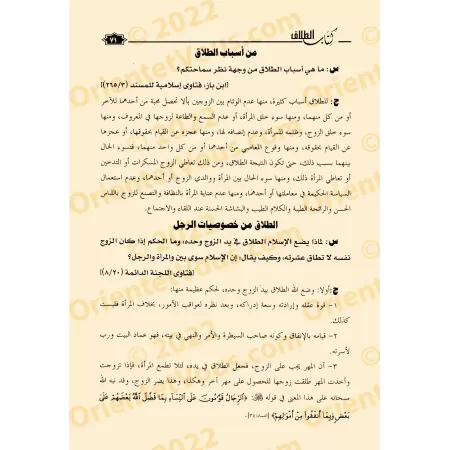 كتاب الطلاق
٧٩
من أسباب الطلاق
س: ما هي أسباب الطلاق من وجهة نظر سماحتكم؟
(ابن باز: فتاوى إسلامية للمسند (٢٦٥/٣))
ج: للطلاق أسباب كثيرة، منها عدم الوئام بين الزوجين بألا تحصل محبة من أحدهما للآخر
أو من كل منهما، ومنها سوء خلق المرأة، أو عدم السمع والطاعة لزوجها في المعروف، ومنها
سوء خلق الزوج، وظلمه للمرأة، وعدم إنصافه لها، ومنها عجزه عن القيام بحقوقها، أو عجزها
عن القيام بحقوقه، ومنها وقوع المعاصي من أحدهما أو من كل واحد منهما، فتسوء الحال
بينهما بسبب ذلك، حتى تكون النتيجة الطلاق، ومن ذلك تعاطي الزوج المسكرات أو التدخين
أو تعاطي المرأة ذلك، ومنها سوء الحال بين المرأة ووالدي الزوج أو أحدهما، وعدم استعمال
السياسة الحكيمة في معاملتها أو أحدهما، ومنها عدم عناية المرأة بالنظافة والتصنع للزوج باللباس
الحسن والرائحة الطيبة والكلام الطيب والبشاشة الحسنة عند اللقاء والاجتماع.
الطلاق من خصوصيات الرجل
س: لماذا يضع الإسلام الطلاق في يد الزوج وحده، وما الحكم إذا كان الزوج
نفسه لا تطاق عشرته، وكيف يقال: إن الإسلام سوى بين والمرأة والرجل؟
(فتاوى اللجنة الدائمة (٨/٢٠))
ج: أولا: وضع الله الطلاق بيد الزوج وحده، لحكم عظيمة منها:
١- قوة عقله وإرادته وسعة إدراكه، وبعد نظره لعواقب الأمور، بخلاف المرأة فليست
كذلك.
٢- قيامه بالإنفاق وكونه صاحب السيطرة والأمر والنهي في بيته، فهو عماد البيت ورب
لأسرته.
٣- أن المهر يجب على الزوج، فجعل الطلاق في يده، لئلا تطمع المرأة، فإذا تزوجت
وأخذت المهر طلقت زوجها للحصول على مهر آخر وهكذا، وهذا يضر الزوج، وقد نبه الله
سبحانه على هذا المعنى في قوله: ﴿الرِّجَالُ قَوَّامُونَ عَلَى النِّسَاءِ بِمَا فَضَّلَ اللَّهُ بَعْضَهُمْ عَلَى
بَعْضٍ وَبِمَا أَنْفَقُوا مِنْ أَمْوَالِهِمْ﴾ [النساء: ٣٤].